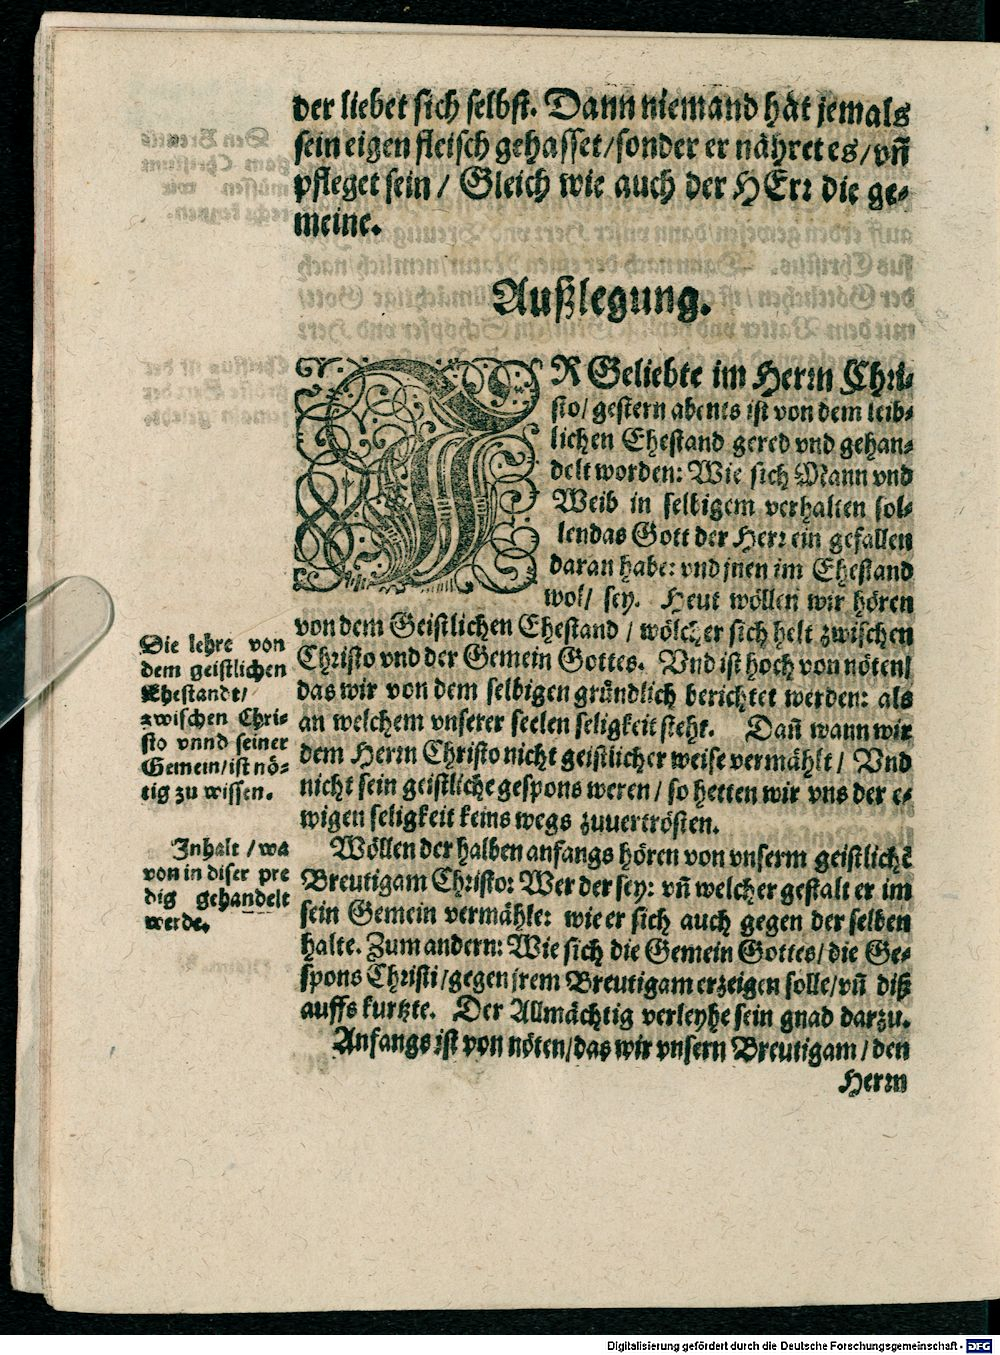 der liebet sich selbst. Dann niemand hat jemals
sein eigen fleisch gehasset/sonder er nähret es/vñ
pfleget sein/ Gleich wie auch der HErr die ge-
meine.
Außlegung.
IR Geliebte im Herrn Chri-
sto/ gestern abents ist von dem leib-
lichen Ehestand gered vnd gehan-
delt worden: Wie sich Mann vnd
Weib in selbigem verhalten sol-
len das Gott der Herr ein gefallen
daran habe: vnd jnen im Ehestand
wol/ sey. Heut wöllen wir hören
von dem Geistlichen Ehestand / wölcher sich helt zwischen
Christo vnd der Gemein Gottes. Vnd ist hoch von nöten/
das wir von dem selbigen gründlich berichtet werden: als
an welchem vnserer seelen seligkeit steht. Dañ wann wir
dem Herrn Christo nicht geistlicher weise vermählt/ Vnd
nicht sein geistliche gespons weren/ so hetten wir vns der e-
wigen seligkeit keins wegs zuuertrösten.
Die lehre von
dem geistlichen
Ehestandt/
zwischen Chri-
sto vnnd seiner
Gemein/ist nö-
tig zu wissen.
Wöllen der halben anfangs hören von vnserm geistlichẽ
Breutigam Christo: Wer der sey: vñ welcher gestalt er im
sein Gemein vermähle: wie er sich auch gegen der selben
halte. Zum andern: Wie sich die Gemein Gottes/ die Ge-
spons Christi/gegen jrem Breutigam erzeigen solle/vñ diß
auffs kurtzte. Der Allmächtig verleyhe sein gnad darzu.
Inhalt / wa
von in diser pre
dig gehandelt
werde.
Anfangs ist von nöten/das wir vnsern Breutigam/ den
Herrn
Digitalisierung gefördert durch die Deutsche Forschungsgemeinschaft - DFG